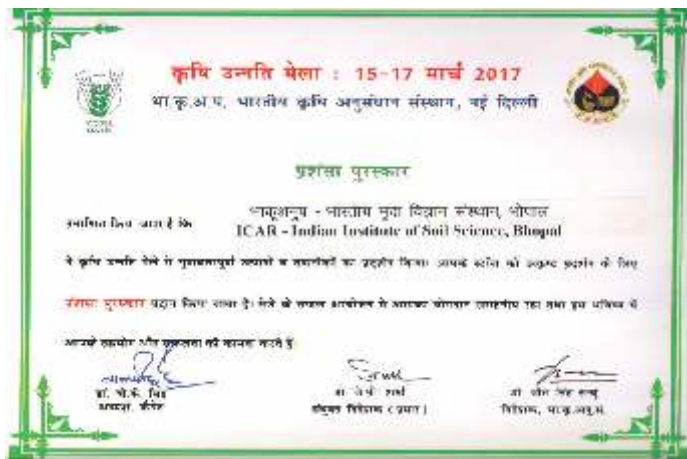 कृषि उन्नति मेला : 15-17 मार्च 2017
भा.कृ.अ.प. भारतीय कृषि अनुसंधान संस्थान, नई दिल्ली
प्रशंसा पुरस्कार
भाकृअनुप - भारतीय मृदा विज्ञान संस्थान, भोपाल
प्रमाणित किया जाता है कि
ICAR - Indian Institute of Soil Science, Bhopal
ने कृषि उन्नति मेले में गुणवत्तापूर्ण उत्पादों व तकनीकों का प्रदर्शन किया। आपके स्टॉल को उत्कृष्ट प्रदर्शन के लिए
प्रशंसा पुरस्कार प्रदान किया जाता है। मेले के सफल आयोजन में आपका योगदान सराहनीय रहा तथा हम भविष्य में
आपके सहयोग और सफलता की कामना करते हैं
डॉ. जे.पी. शर्मा
संयुक्त निदेशक (प्रसार)
निदेशक, भा.कृ.अनु.सं.